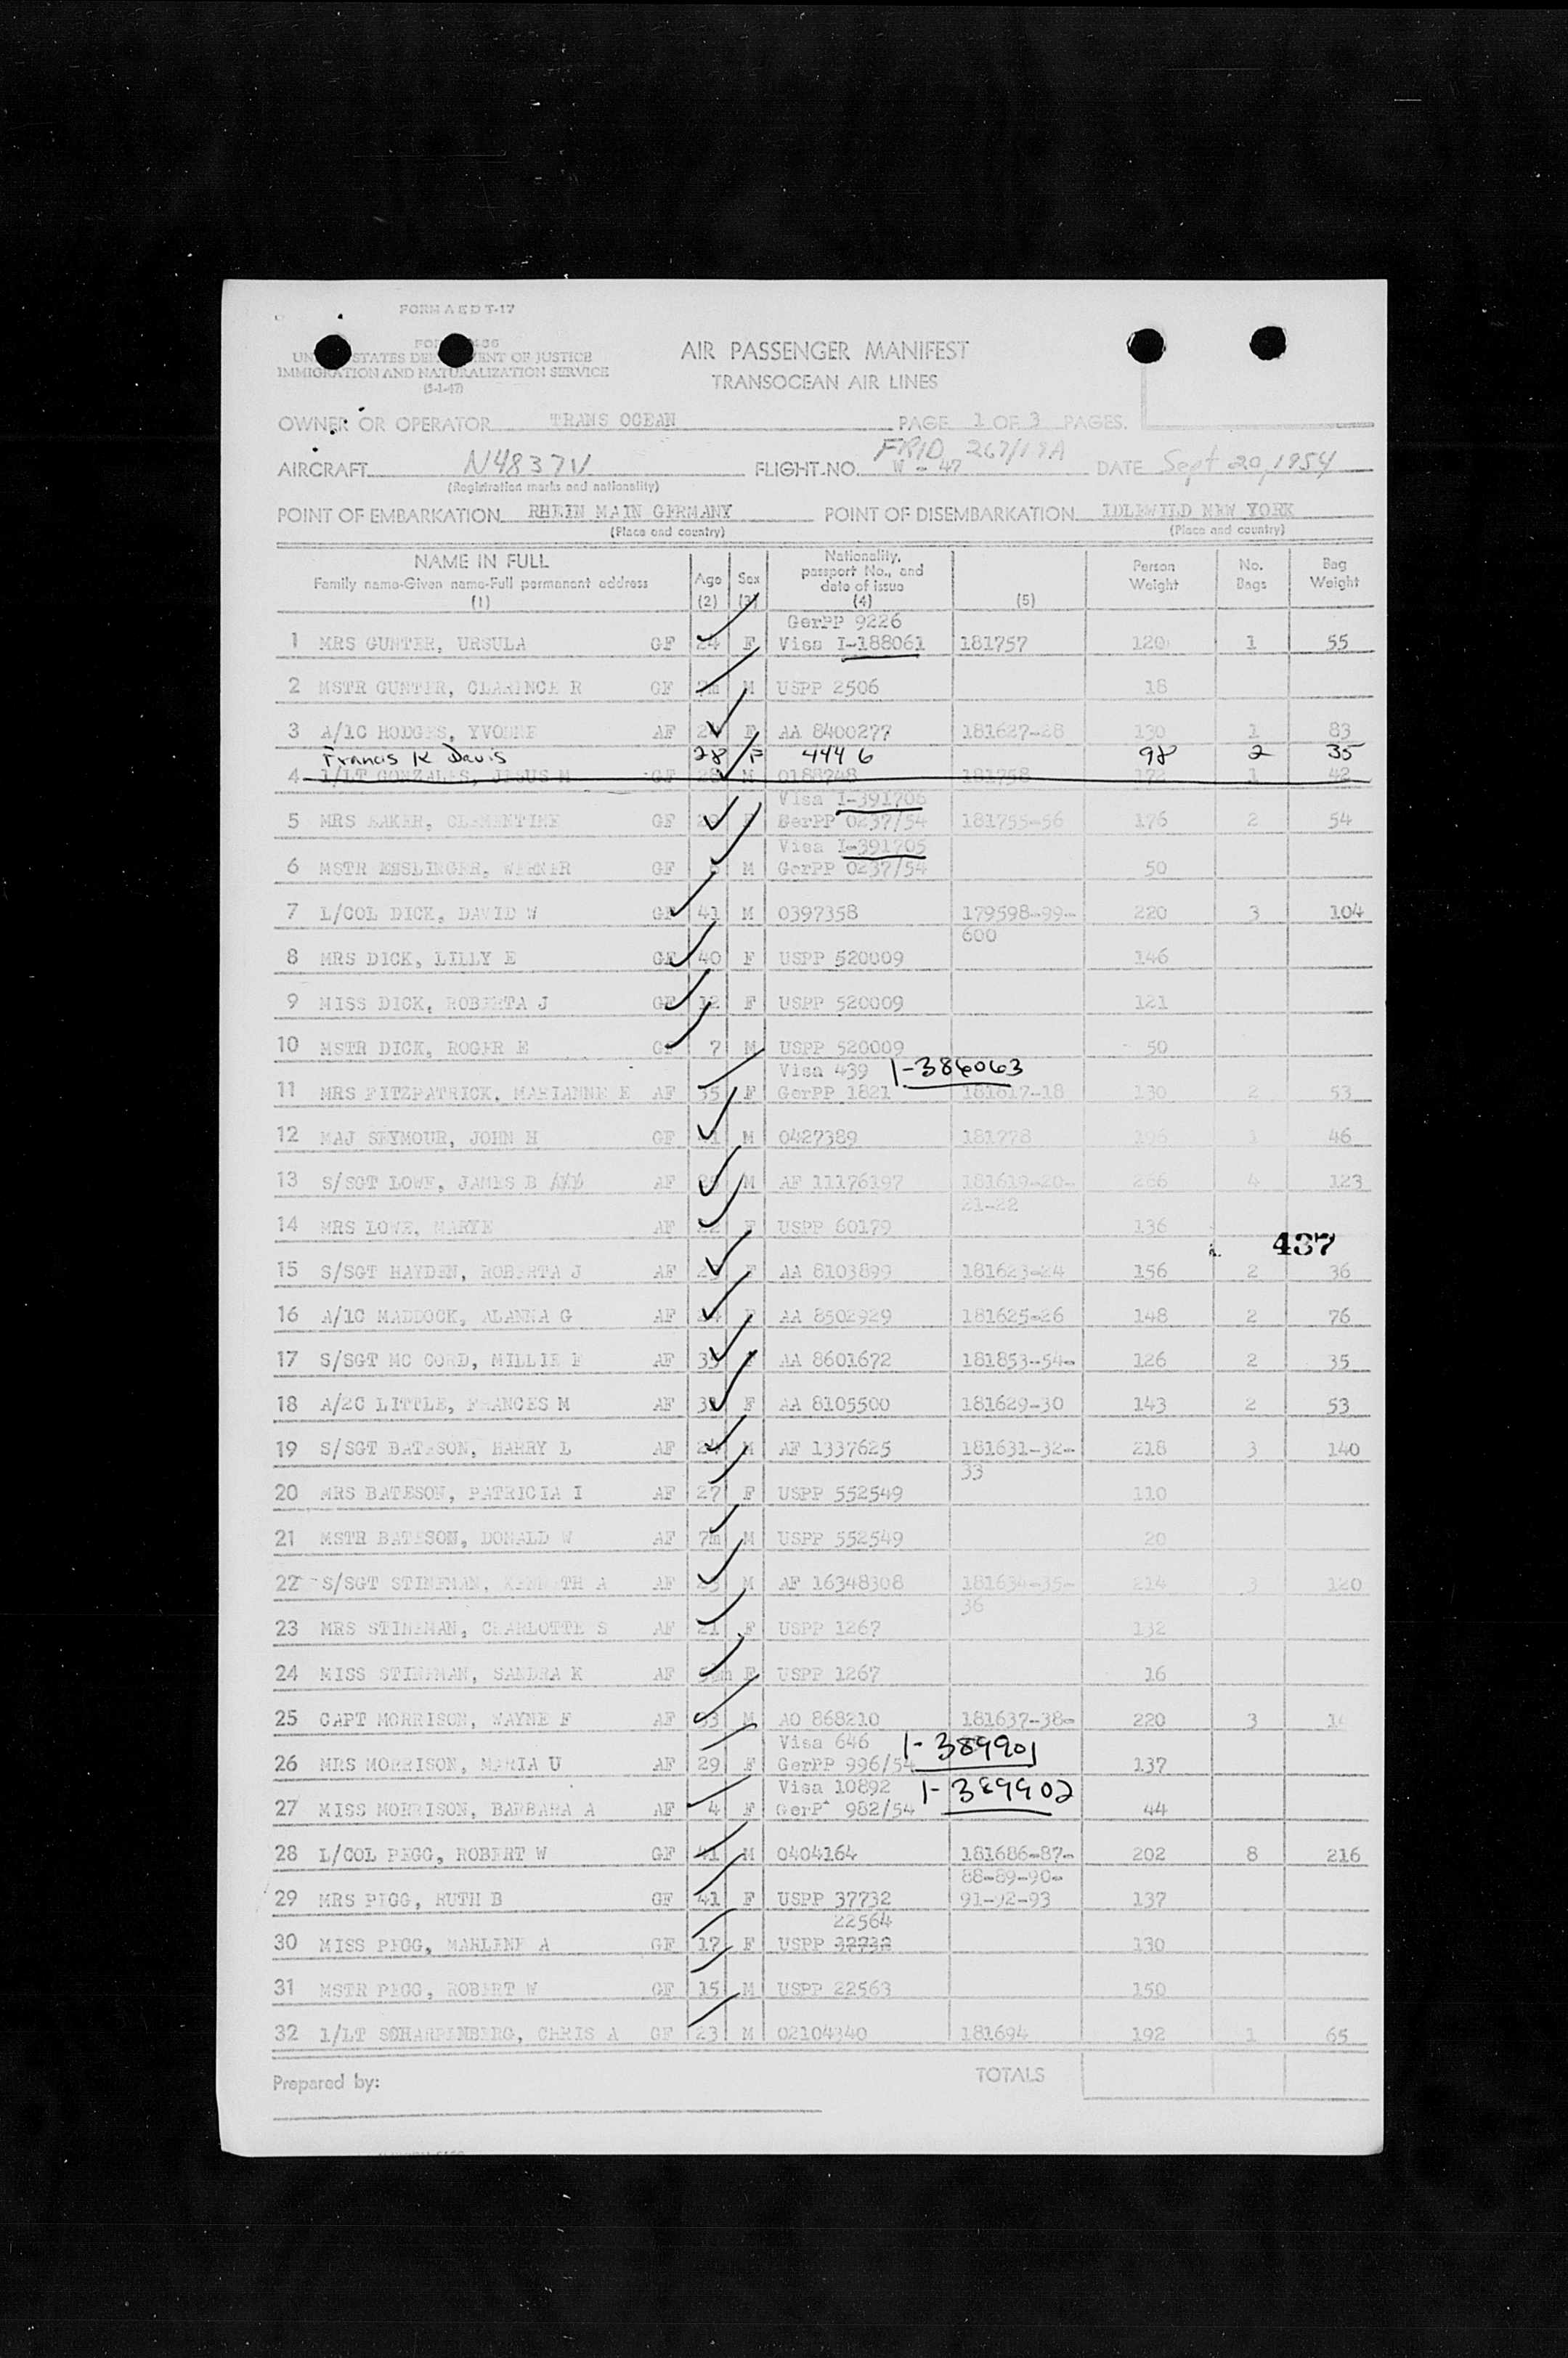 FORM A E D T-17
UN STATES DE ENT OF JUSTICE
IMMIGRATION AND NATURALIZATION SERVICE
(5-1-47)
AIR PASSENGER MANIFEST
TRANSOCEAN AIR LINES
OWNER OR OPERATOR TRANS OCEAN PAGE 1 OF 3 PAGES.
FRID 267/19A
AIRCRAFT N4837V FLIGHT NO. W - 47 DATE Sept 20, 1954
(Registration marks and nationality)
POINT OF EMBARKATION RHEIN MAIN GERMANY POINT OF DISEMBARKATION IDLEWILD NEW YORK
(Place and country) (Place and country)
NAME IN FULL Age Sex Nationality, passport No., and date of issue Person Weight No. Bags Bag Weight
Family name-Given name-Full permanent address
(1) (2) (3) (4) (5)
GerPP 9226
1 MRS GUNTER, URSULA GF 24 F Visa I-188061 181757 120 1 55
2 MSTR GUNTER, CLARENCE R GF M USPP 2506 18
3 A/1C HODGES, YVONNE AF F AA 8400277 181627-28 130 1 83
Francis K Davis 28 F 4446 98 2 35
4 1/LT GONZALES, JESUS M GF 28 M 0188748 181758 172 1 42
Visa I-391706
5 MRS BAKER, CLEMENTINE GF GerPP 0237/54 181755-56 176 2 54
Visa I-391705
6 MSTR ESSLINGER, WERNER GF M GerPP 0237/54 50
7 L/COL DICK, DAVID W GF 41 M 0397358 179598-99- 220 3 104
600
8 MRS DICK, LILLY E GF 40 F USPP 520009 146
9 MISS DICK, ROBERTA J GF 12 F USPP 520009 121
10 MSTR DICK, ROGER E GF 7 M USPP 520009 50
Visa 439 I-386063
11 MRS FITZPATRICK, MARIANNE E AF 35 F GerPP 1821 181617-18 130 2 53
12 MAJ SEYMOUR, JOHN H GF M 0427389 181778 196 1 46
13 S/SGT LOWE, JAMES B AF M AF 11176197 181619-20- 266 4 123
21-22
14 MRS LOWE, MARYE AF 22 F USPP 60179 136
437
15 S/SGT HAYDEN, ROBERTA J AF F AA 8103899 181623-24 156 2 36
16 A/1C MADDOCK, ALANNA G AF F AA 8502929 181625-26 148 2 76
17 S/SGT MC CORD, MILLIE AF 35 AA 8601672 181853-54- 126 2 35
18 A/2C LITTLE, FRANCES M AF F AA 8105500 181629-30 143 2 53
19 S/SGT BATESON, HARRY L AF 24 M AF 1337625 181631-32- 218 3 140
33
20 MRS BATESON, PATRICIA I AF 27 F USPP 552549 110
21 MSTR BATESON, DONALD W AF 7m M USPP 552549 20
22 S/SGT STINEMAN, KENNETH A AF 23 M AF 16348308 181634-35- 214 3 120
36
23 MRS STINEMAN, CHARLOTTE S AF 21 F USPP 1267 132
24 MISS STINEMAN, SANDRA K AF F USPP 1267 16
25 CAPT MORRISON, WAYNE F AF 33 M AO 868210 181637-38- 220 3
Visa 646 I-389901
26 MRS MORRISON, MARIA U AF 29 F GerPP 996/54 137
Visa 10892 I-389902
27 MISS MORRISON, BARBARA A AF 4 F GerP 982/54 44
28 L/COL PEGG, ROBERT W GF 41 M 0404164 181686-87- 202 8 216
88-89-90-
29 MRS PEGG, RUTH B GF 41 F USPP 37732 91-92-93 137
22564
30 MISS PEGG, MARLENE A GF 17 F USPP 37732 130
31 MSTR PEGG, ROBERT W GF 15 M USPP 22563 150
32 1/LT SCHARPENBERG, CHRIS A GF 23 M 02104340 181694 192 1 65
Prepared by: TOTALS